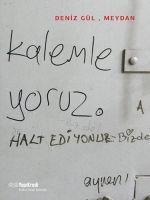 DENİZ GÜL , MEYDAN
kalemle
yoruz.
A
HALT EDİYONUZ - Bizde
aynen!
YapıKredi